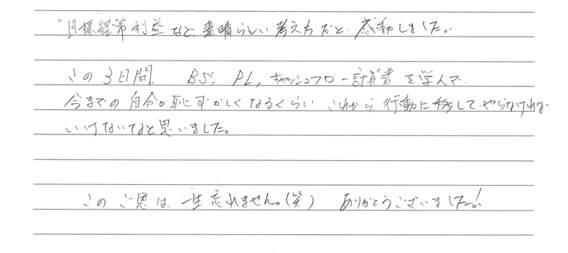 "目標経常利益など、素晴らしい考え方だと感動しました。
この3日間、BS、PL、キャッシュフロー計算書を学んで
今までの自分が恥ずかしくなるくらい これから行動に移して やらなければ
いけないなと思いました。
このご恩は、一生忘れません。(笑) ありがとうございました!